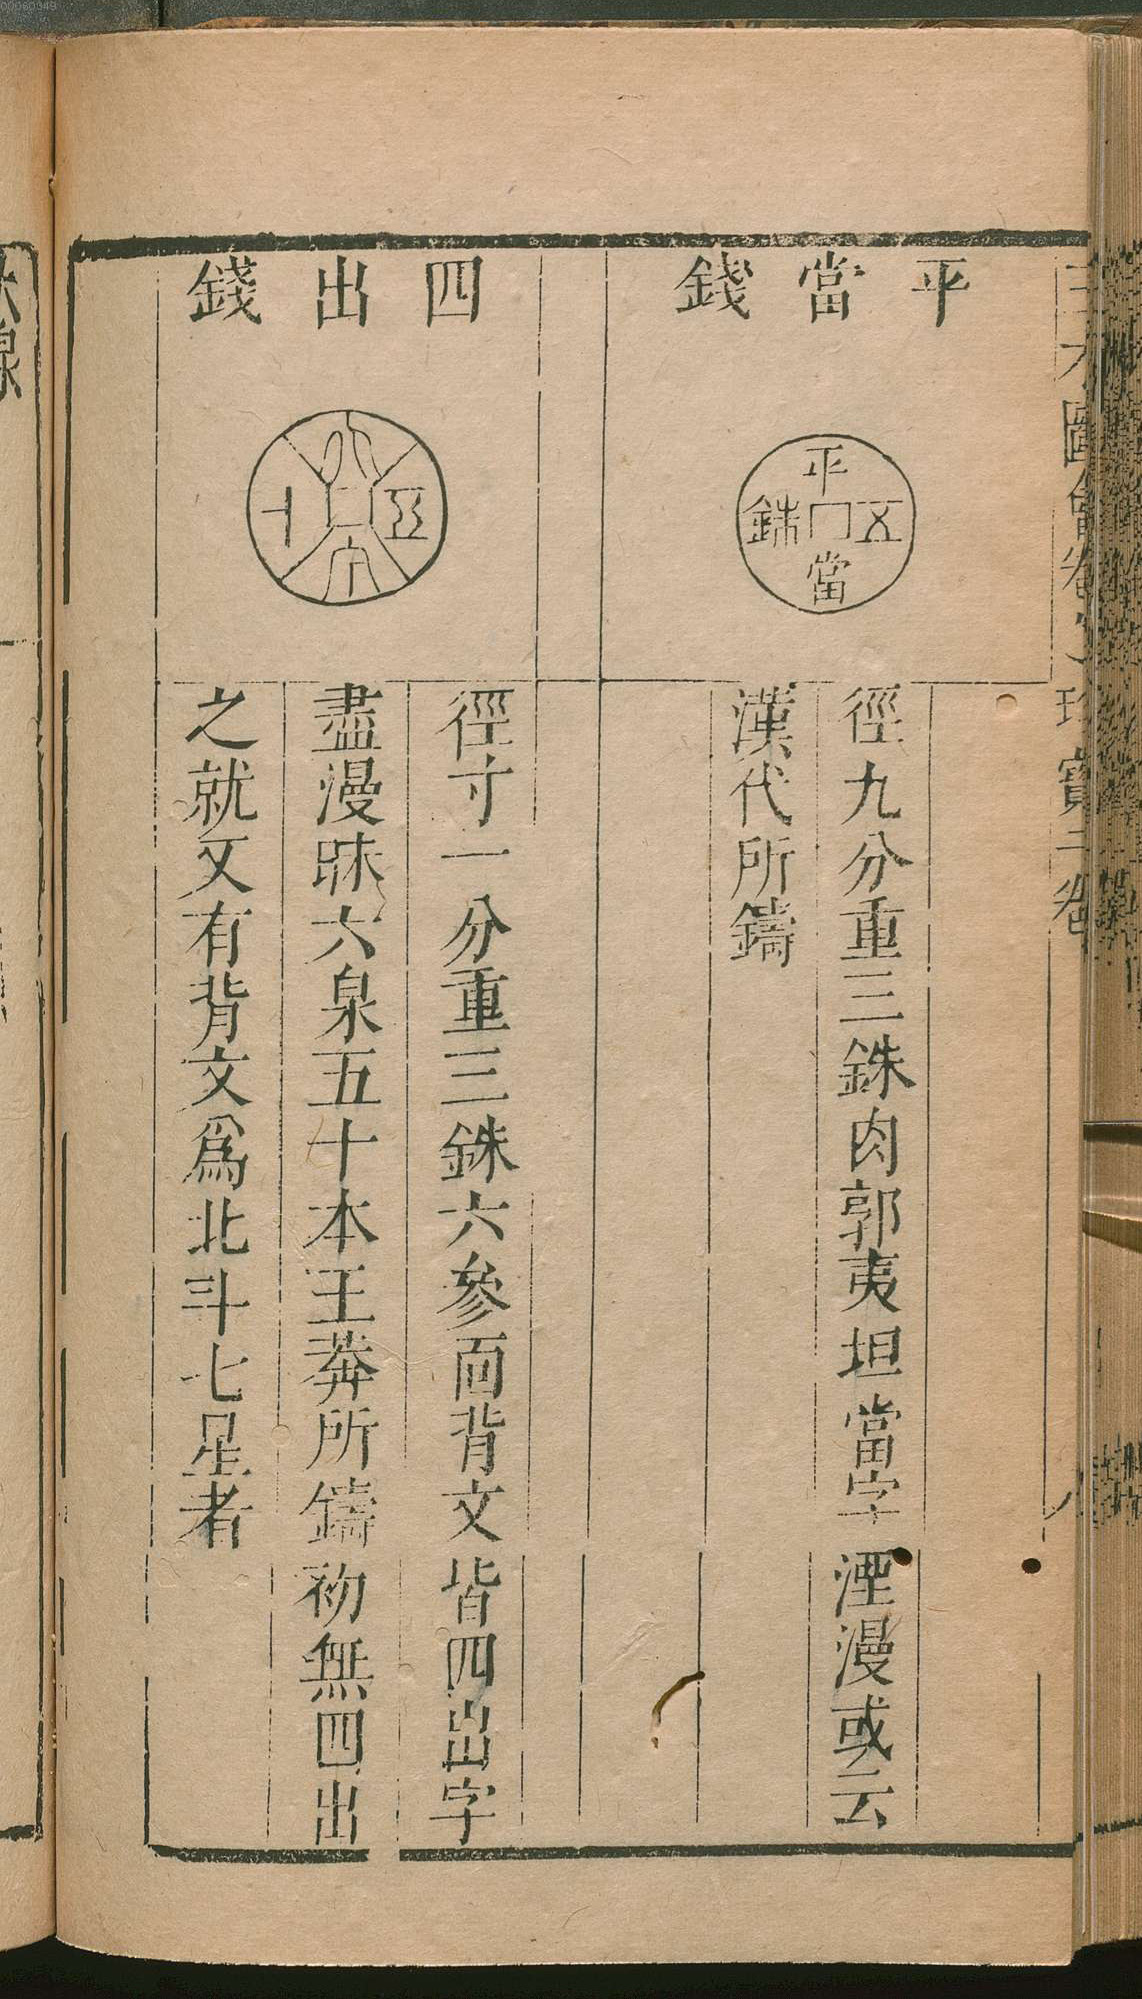 平當錢
平
五
銖
當
徑九分重三銖肉郭夷坦當字湮漫或云
漢代所鑄
四出錢
五
徑寸一分重三銖六參面背文皆四出字
盡漫眛六泉五十本王莽所鑄初無四出
之就又有背文爲北斗七星者
三才圖會
珍寶二卷
00060349